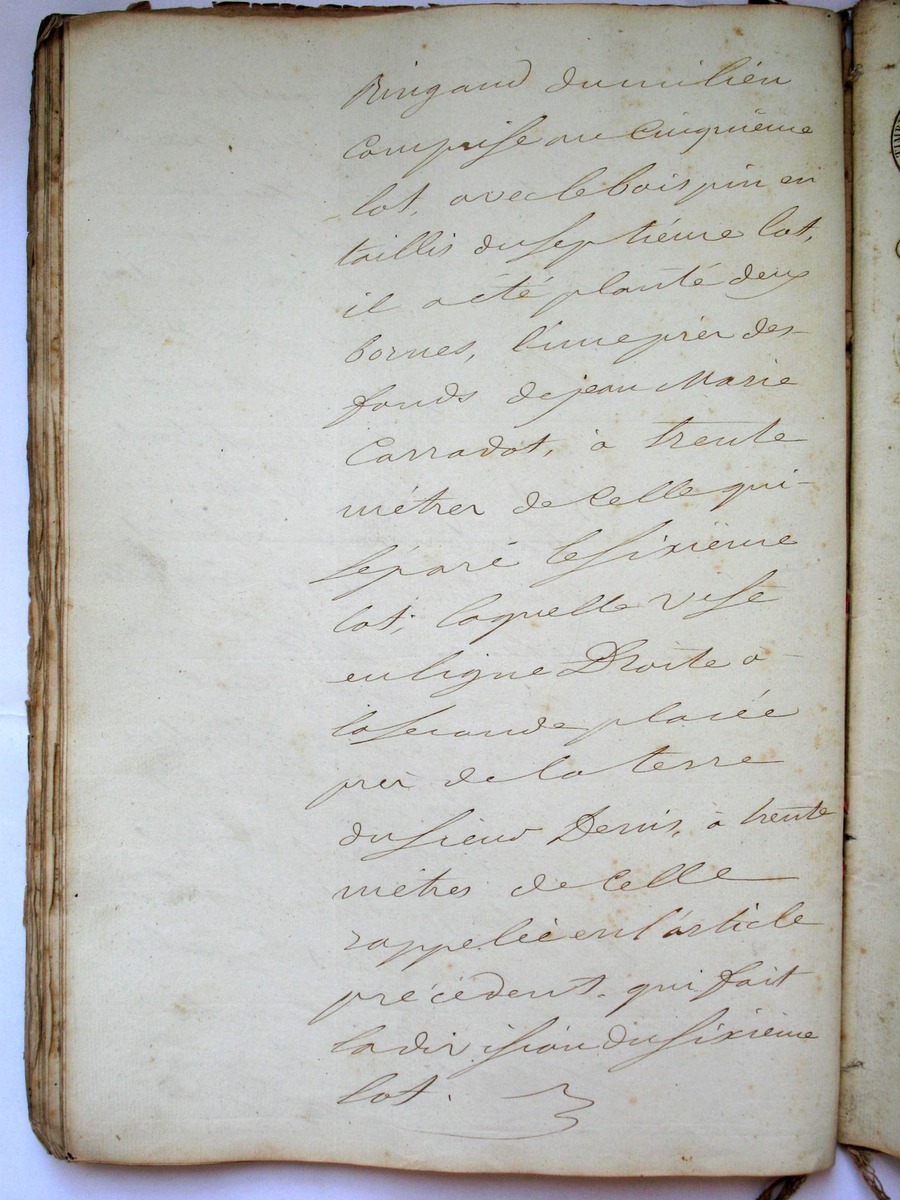 Ringaud du milieu
comprise au cinquième
lot, avec le bois pin en
taillis du septième lot,
il a été planté deux
bornes, l'une près des
fonds de jean Marie
Carradot, à trente
métres de celle qui
séparé le sixième
lot; laquelle vise
en ligne Droite a
la seconde placée
près de la terre
du sieur Denis, à trente
métres de celle
rappelée en l'article
précédent. qui fait
la division du sixieme
lot.